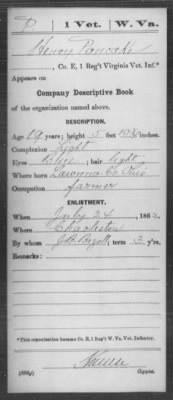 P. | 1 Vet. | W. Va.
Henry Pancake
, Co. E, 1 Reg't Virginia Vet. Inf.*
Appears on
Company Descriptive Book
of the organization named above.
DESCRIPTION.
Age 29 years; height 5 feet 10¾ inches.
Complexion Light
Eyes Blue; hair light
Where born Lawrence Co Ohio
Occupation farmer
ENLISTMENT.
When July 24, 186
Where Charleston
By whom J.B., term 3 y'rs.
Remarks:
*This organization became Co. E, 1 Reg't W. Va. Vet. Infantry.
(383g) Copyist.